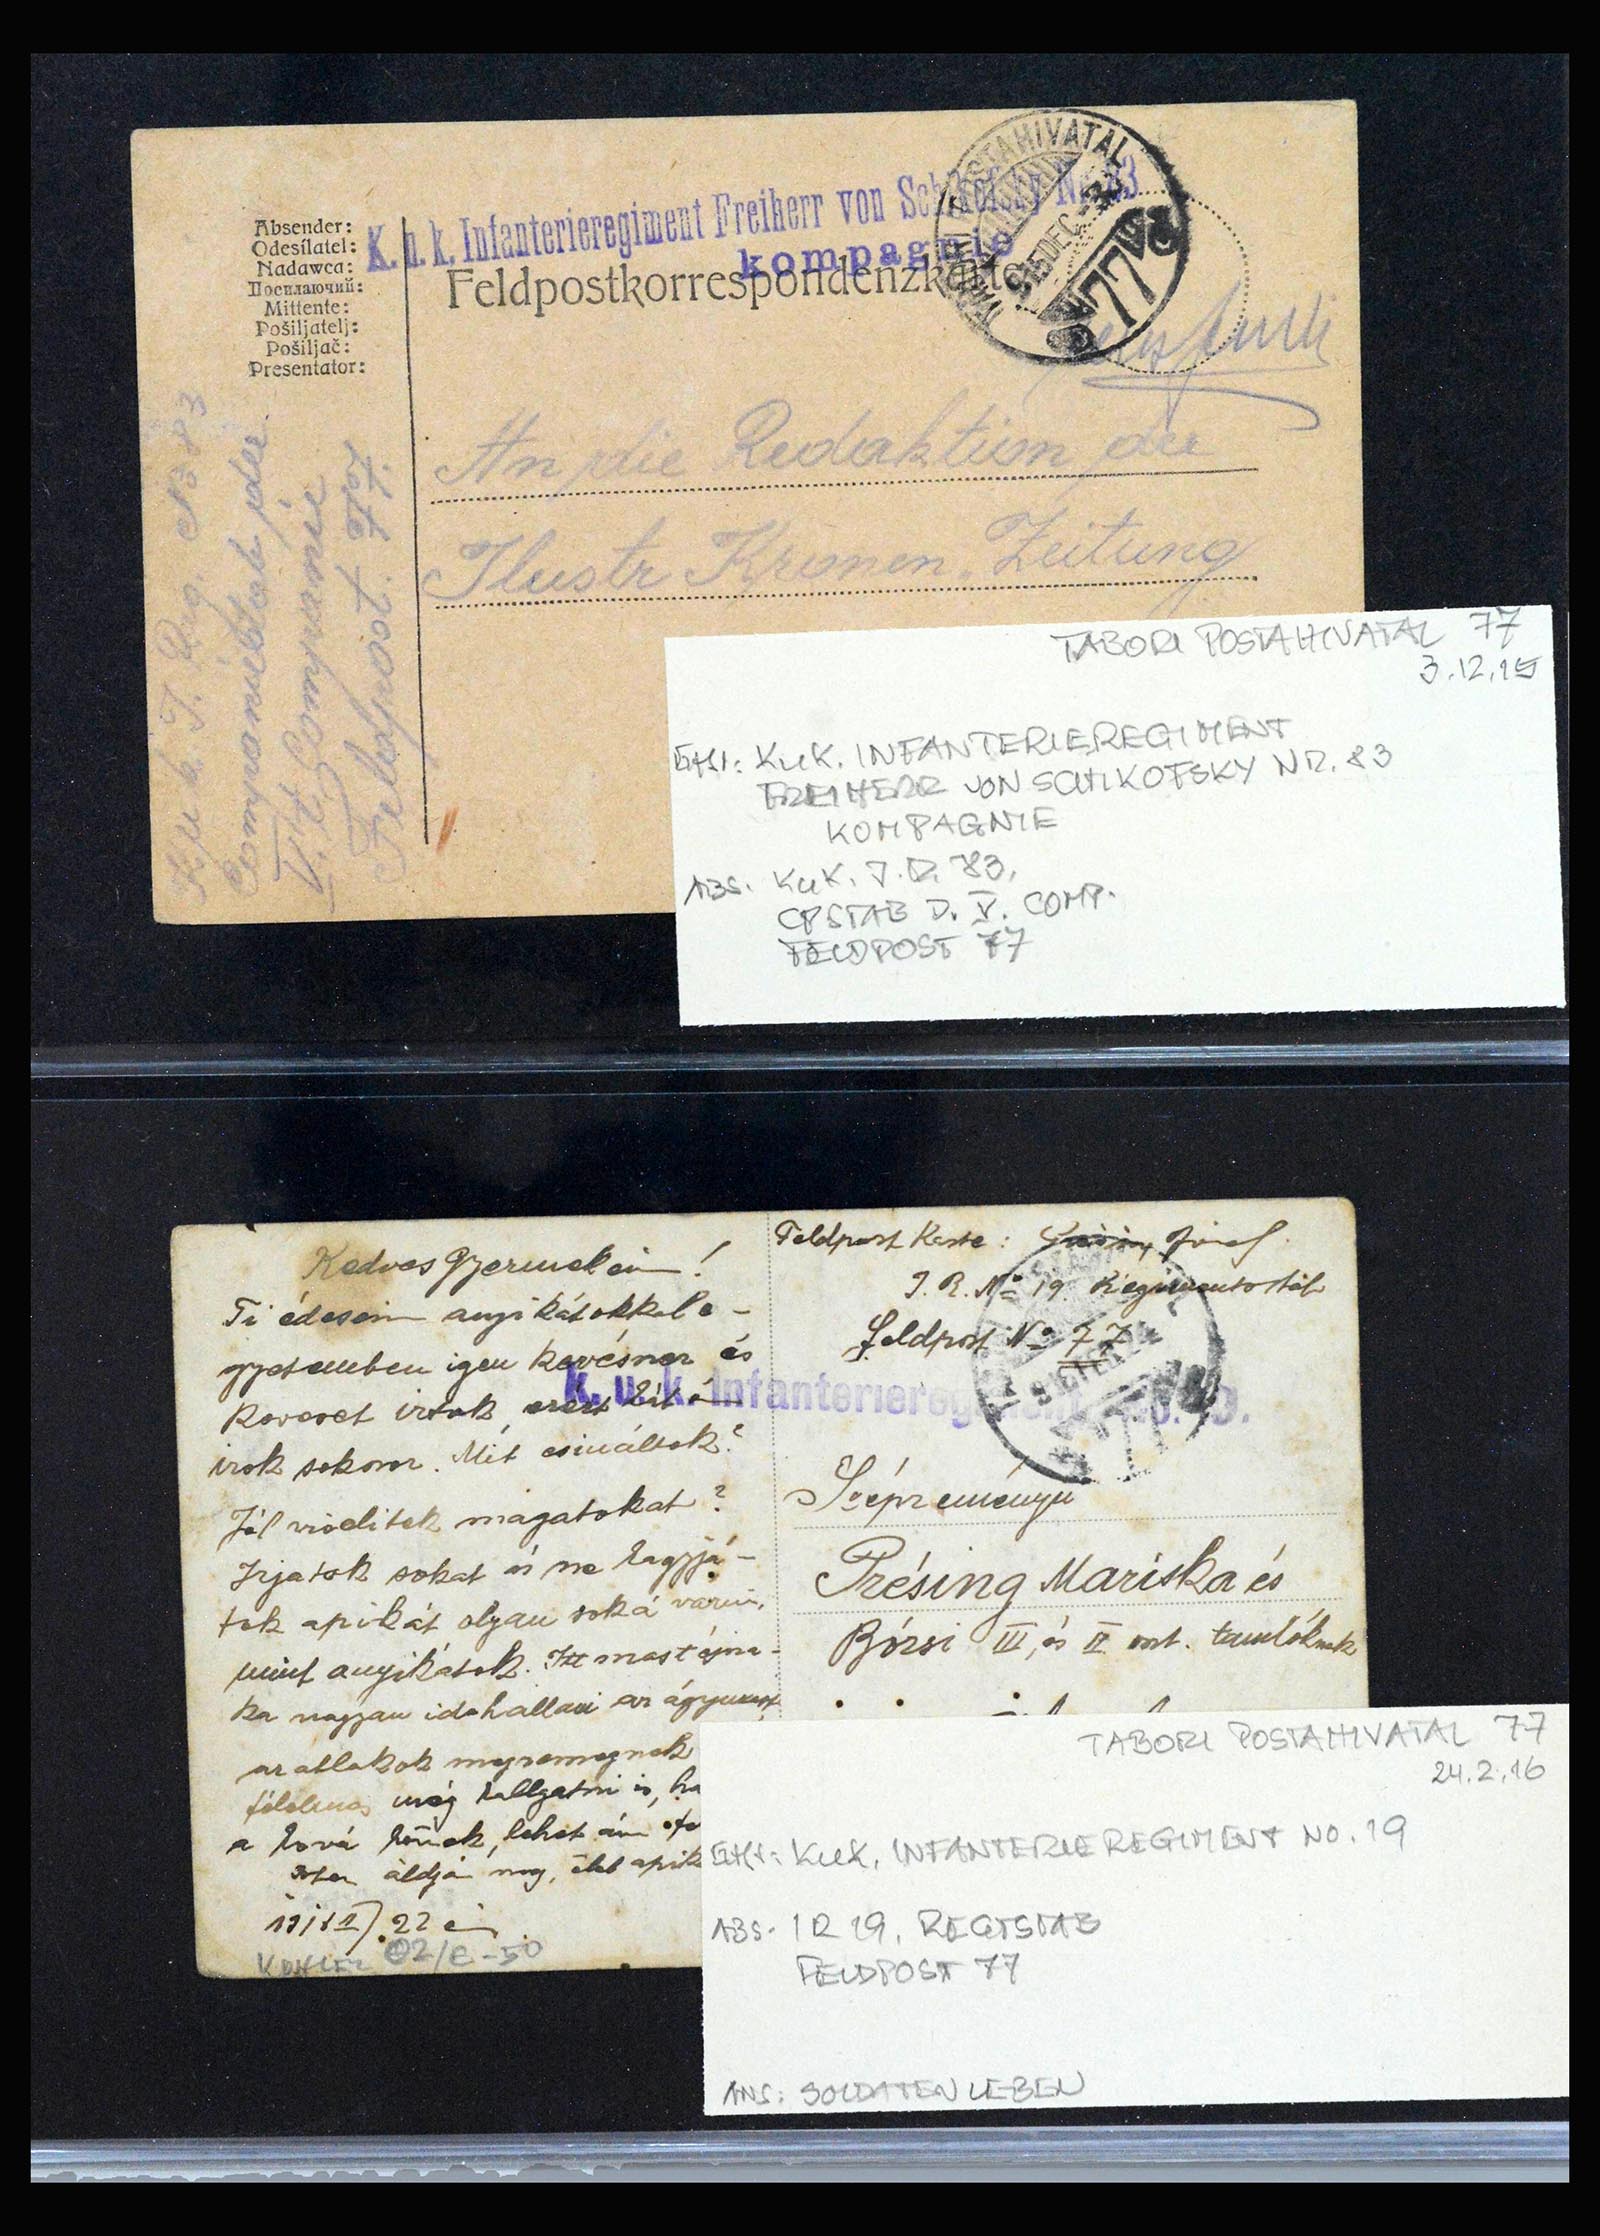 Absender:
Odesílatel:
Nadawca:
Посилаючий:
Mittente:
Pošiljatelj:
Pošiljač:
Presentator:
K. u. k. Infanterieregiment Freiherr von Schikofsky Nr. 83
kompagnie
Feldpostkorrespondenzkarte
POSTAHIVATAL
915 DEC
77
An die Redaktion der
Ilustr Kronen-Zeitung
K u k. I. Rug. N° 83
der
V. Companie
Feldpost
TABORI POSTAHIVATAL 77
3.12.15
KuK. INFANTERIEREGIMENT
FREIHERR VON SCHIKOFSKY NR. 83
KOMPAGNIE
ABS. KuK. J.R. 83,
CPSTAB D. V. COMP.
FELDPOST 77
Kedves Gyermekeim!
Ti édeseim anyikátokkal e-
gyetemben igen kevésner és
keveset irtok, azért én
irok sokszor. Mit csináltok?
Jól viselitek magatokat?
Irjatok sokat és ne hagyjá-
tok apikát olyan soká várni,
mint anyikátok. Itt most éjsza-
ka nagyan ide hallani az ágyukat
az ablakok megremegnek
félelmes még hallgatni is, ha
a hová lőnek, lehet ám
Isten áldja meg, ölel apik
22
KOHLER 02/E-50
Feldpost Karte: József
I. R. N° 19. Regimentsstab
Feldpost N° 77
K. u. k. Infanterieregiment No. 19.
77
Szépreményű
Présing Mariska és
Börsi III, és II oszt. tanulóknak
TABORI POSTAHIVATAL 77
24.2.16
KuK. INFANTERIEREGIMENT NO. 19
ABS. IR 19, REGTSTAB
FELDPOST 77
ANS: SOLDATENLEBEN